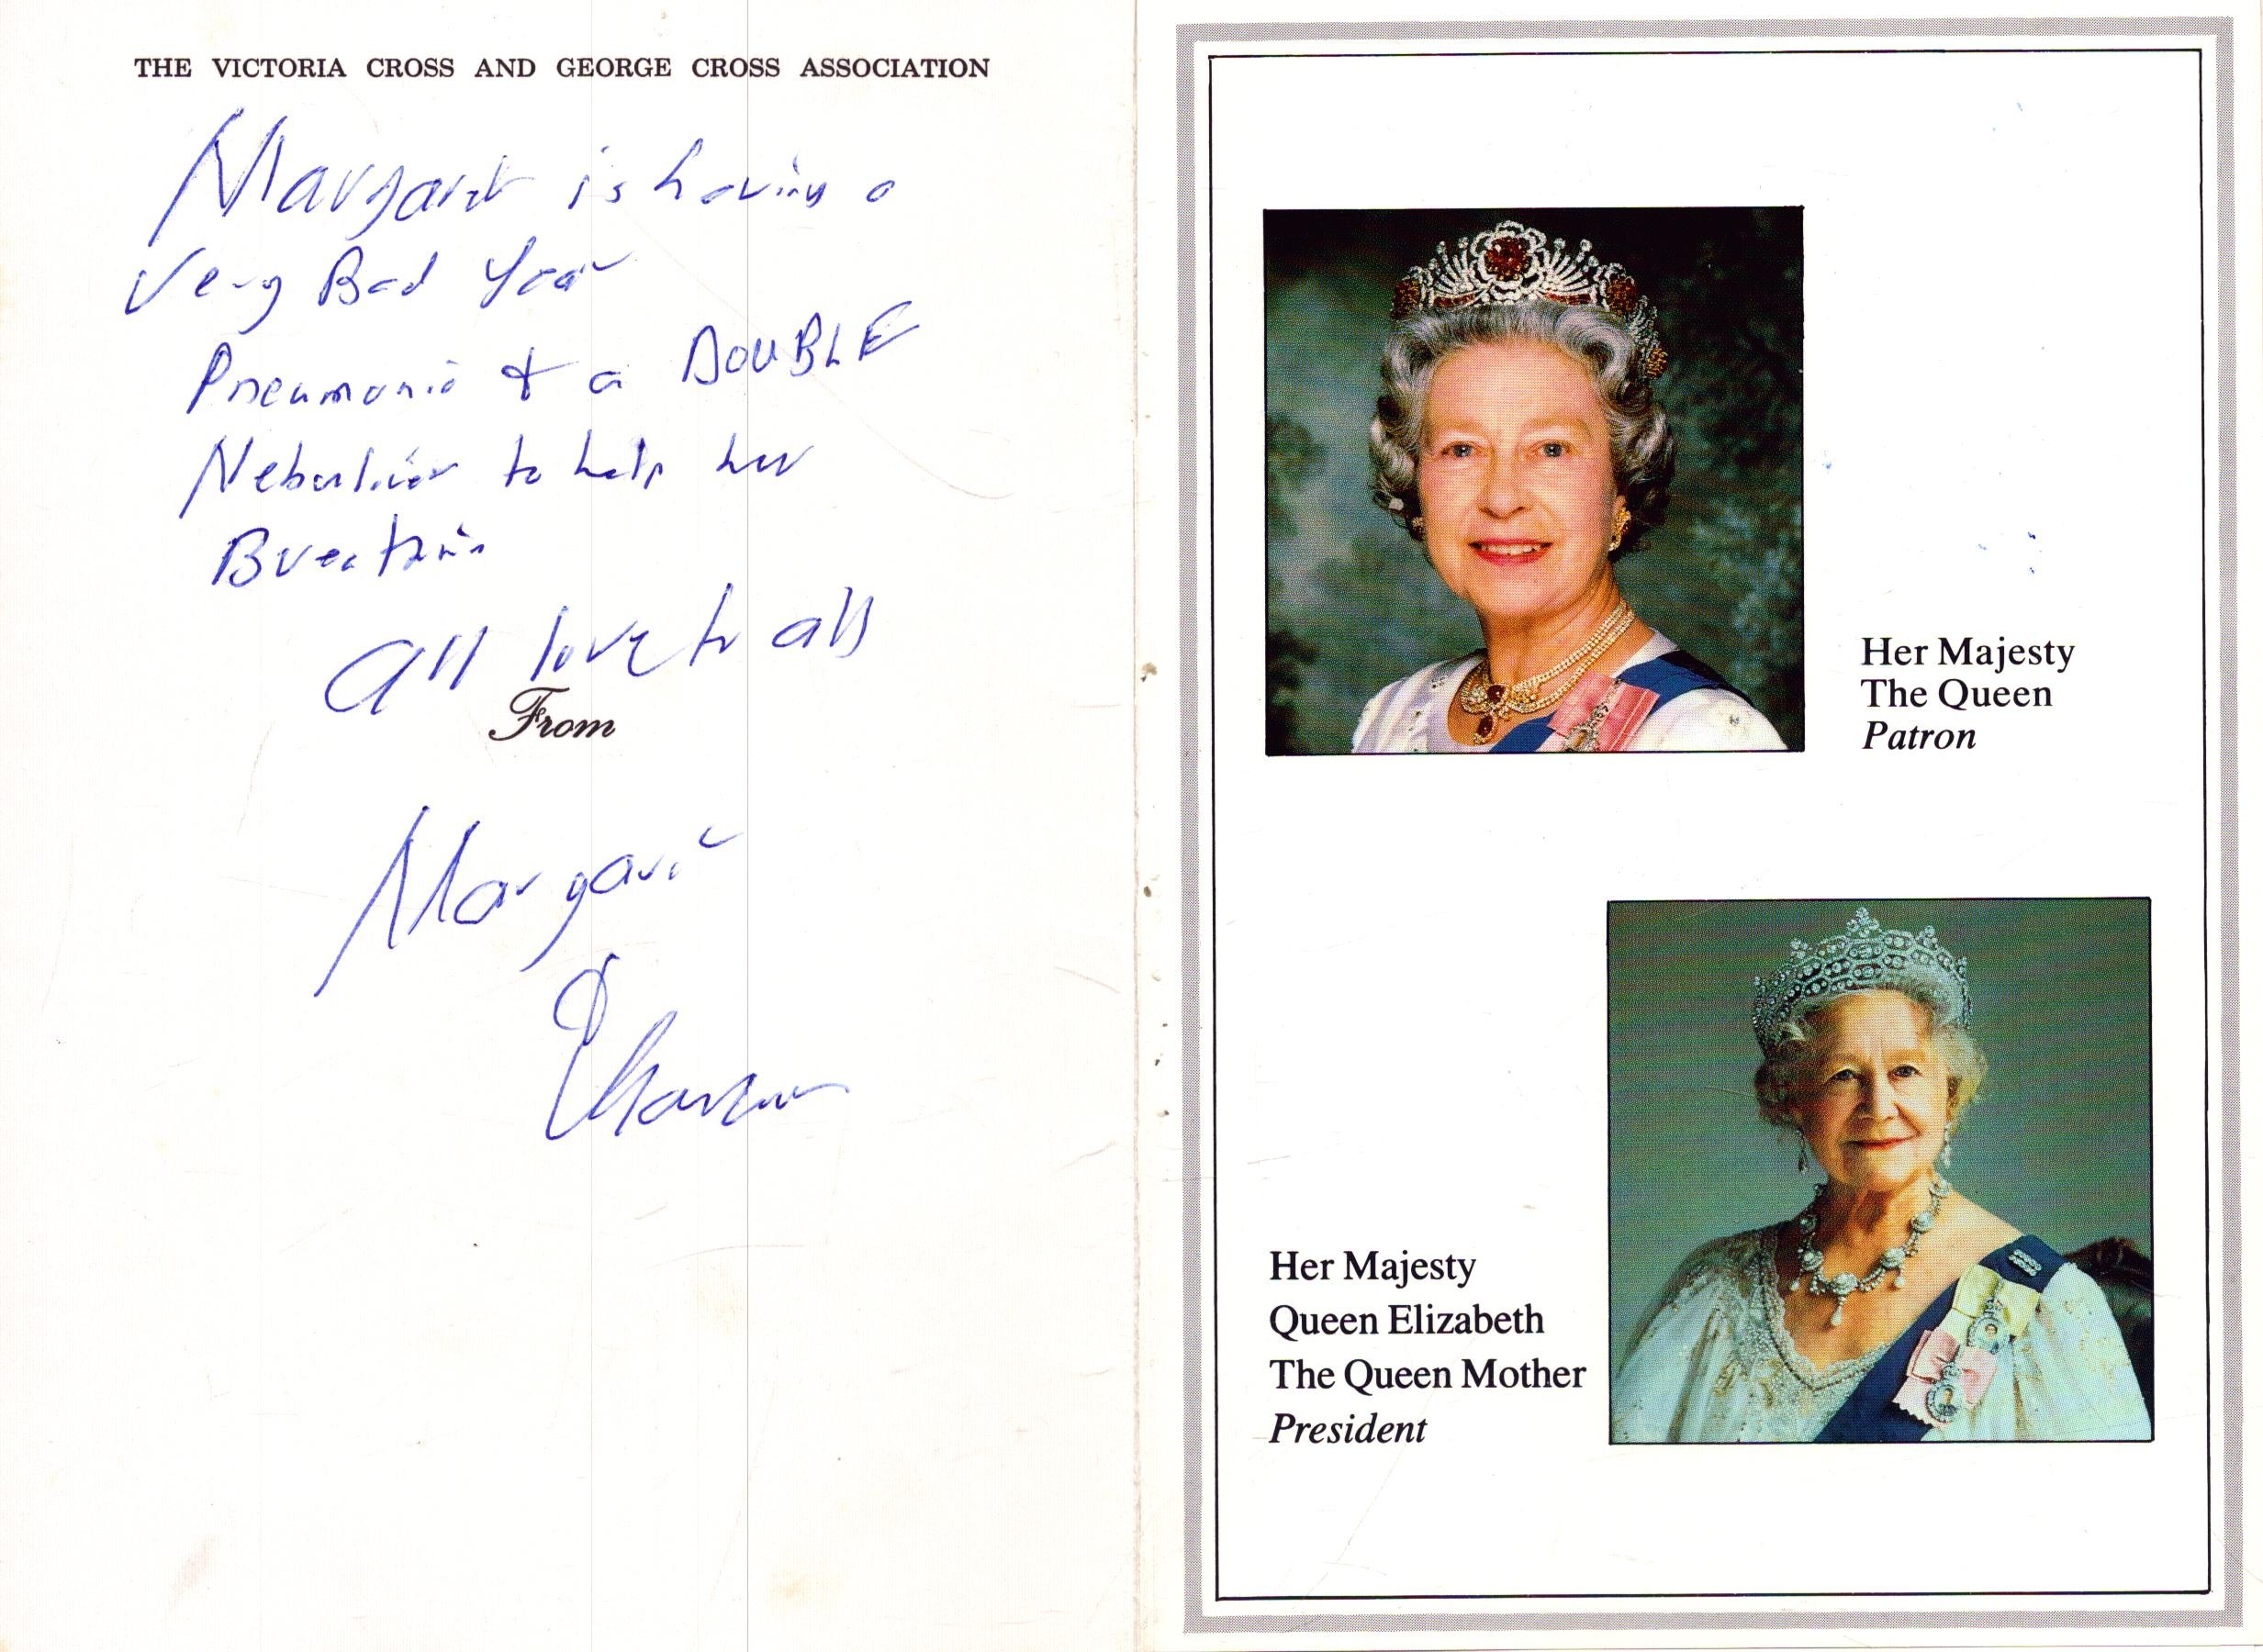 THE VICTORIA CROSS AND GEORGE CROSS ASSOCIATION
Margaret is having a
Very Bad Year
Pneumonia & a DOUBLE
to help her
Breathin
All love to all
From
Margaret
Her Majesty
The Queen
Patron
Her Majesty
Queen Elizabeth
The Queen Mother
President